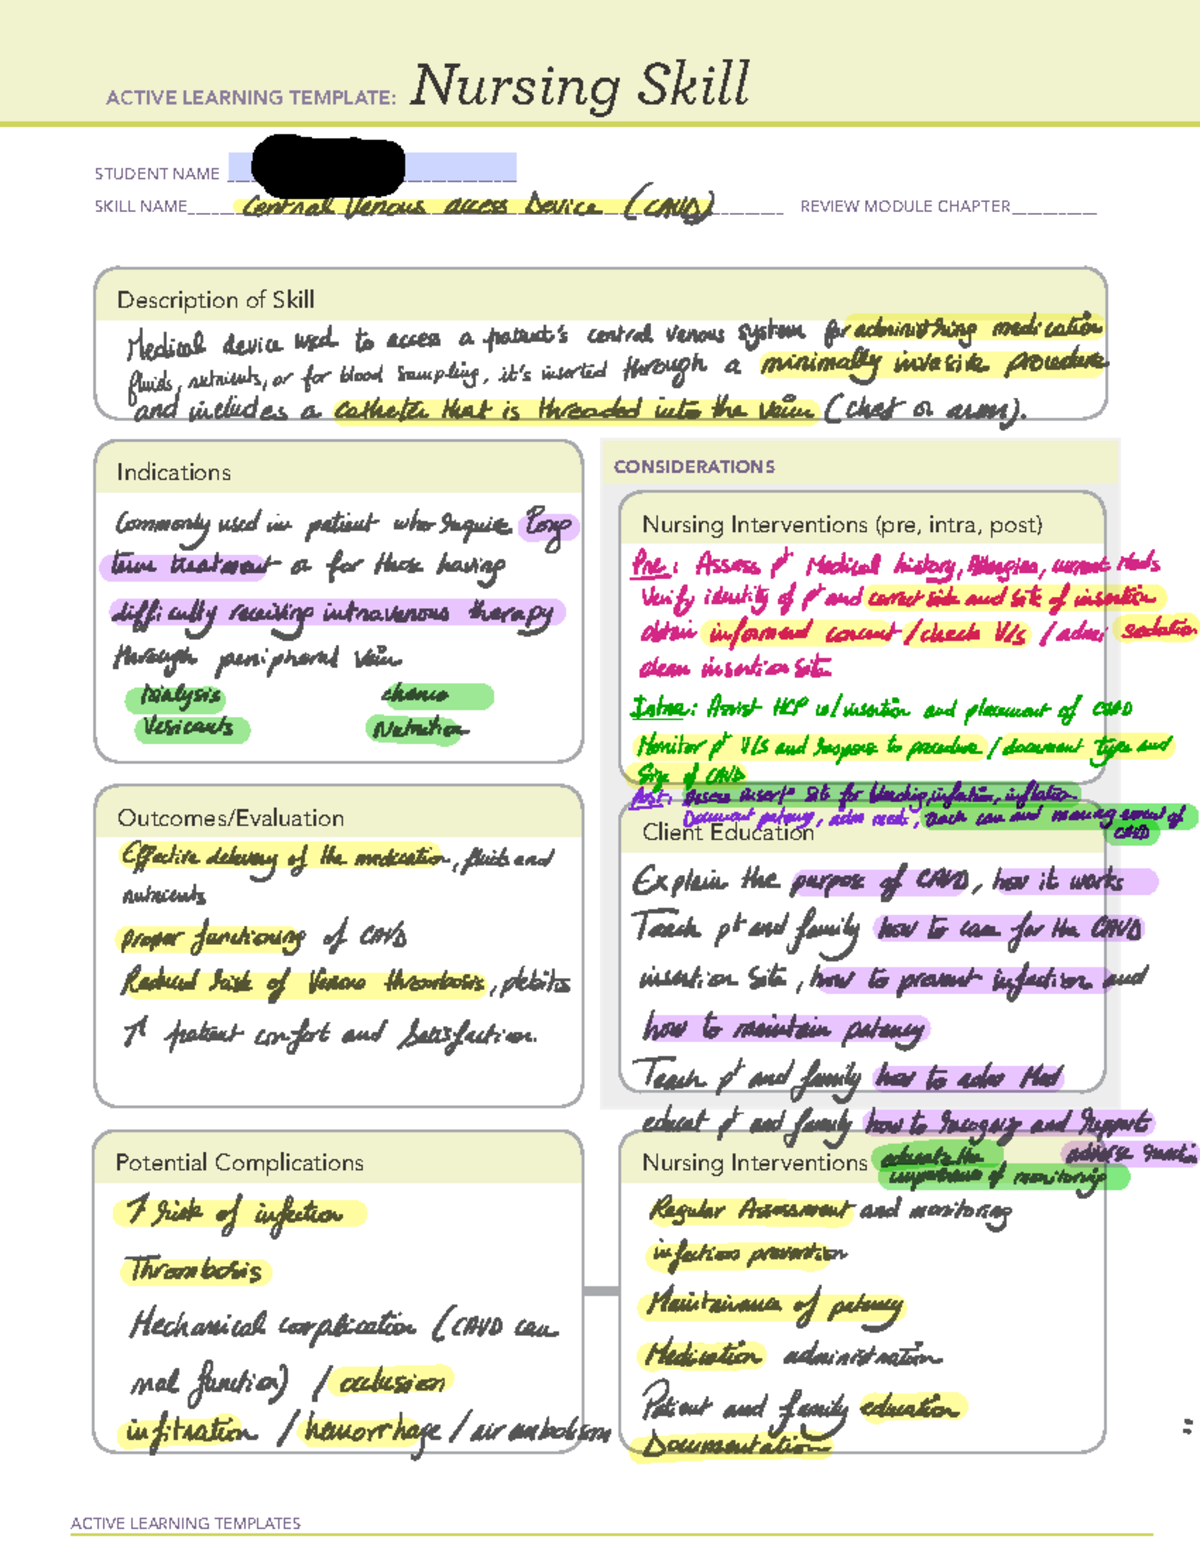 ACTIVE LEARNING TEMPLATE: Nursing Skill
STUDENT NAME
SKILL NAME Central Venous access Device (CAVD)
REVIEW MODULE CHAPTER
Description of Skill
Medical device used to access a patient's central venous system for administring medication
fluids, nutrients, or for blood sampling, it's inserted through a minimally invasive procedure
and includes a catheter that is threaded into the vein (chest or arm).
Indications
Commonly used in patient who require long
term treatment or for those having
difficulty receiving intravenous therapy
through peripheral vein
Dialysis chemo
Vesicants Nutrition
CONSIDERATIONS
Nursing Interventions (pre, intra, post)
Pre: Assess pt Medical history, Allergies, current Meds
Verify identity of pt and correct side and site of insertion
obtain informend concent / check V/s / admi sedation
clean insertion site
Intra: Assist HCP w/ insertion and placement of CAVD
Monitor pt V/s and response to procedure / document type and
Size of CAVD
Post: Assess insert° Site for bleeding, infection, inflation
Document patency, adm meds, care and management of
CAVD
Outcomes/Evaluation
Effective delivery of the medication, fluids and
nutrients
proper functioning of CAVD
Reduced risk of Venous thrombosis, plebitis
↑ patient comfort and Satisfaction.
Client Education
Explain the purpose of CAVD, how it works
Teach pt and family how to care for the CAVD
insertion Site, how to prevent infection and
how to maintain patency
Teach pt and family how to adm Med
educat pt and family how to recogniz and Report
adverse reaction
educate the
importance of monitoring
Potential Complications
↑ risk of infection
Thrombosis
Mechanical complication (CAVD can
mal function) / occlusion
infitration / hemorrhage / air embolism
Nursing Interventions
Regular Assessment and monitoring
infection prevention
Maintainance of patency
Medication administration
Patient and family education
Documentation
ACTIVE LEARNING TEMPLATES